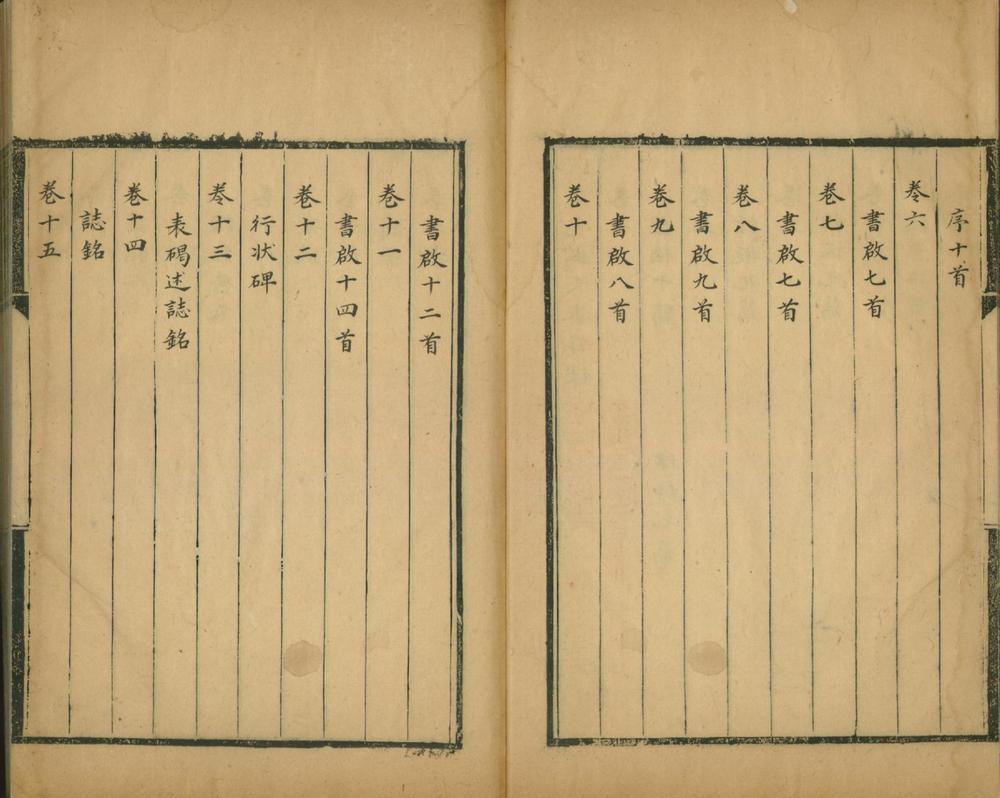 序十首
卷六
書啟七首
卷七
書啟七首
卷八
書啟九首
卷九
書啟八首
卷十
書啟十二首
卷十一
書啟十四首
卷十二
行状碑
卷十三
表碣述誌銘
卷十四
誌銘
卷十五